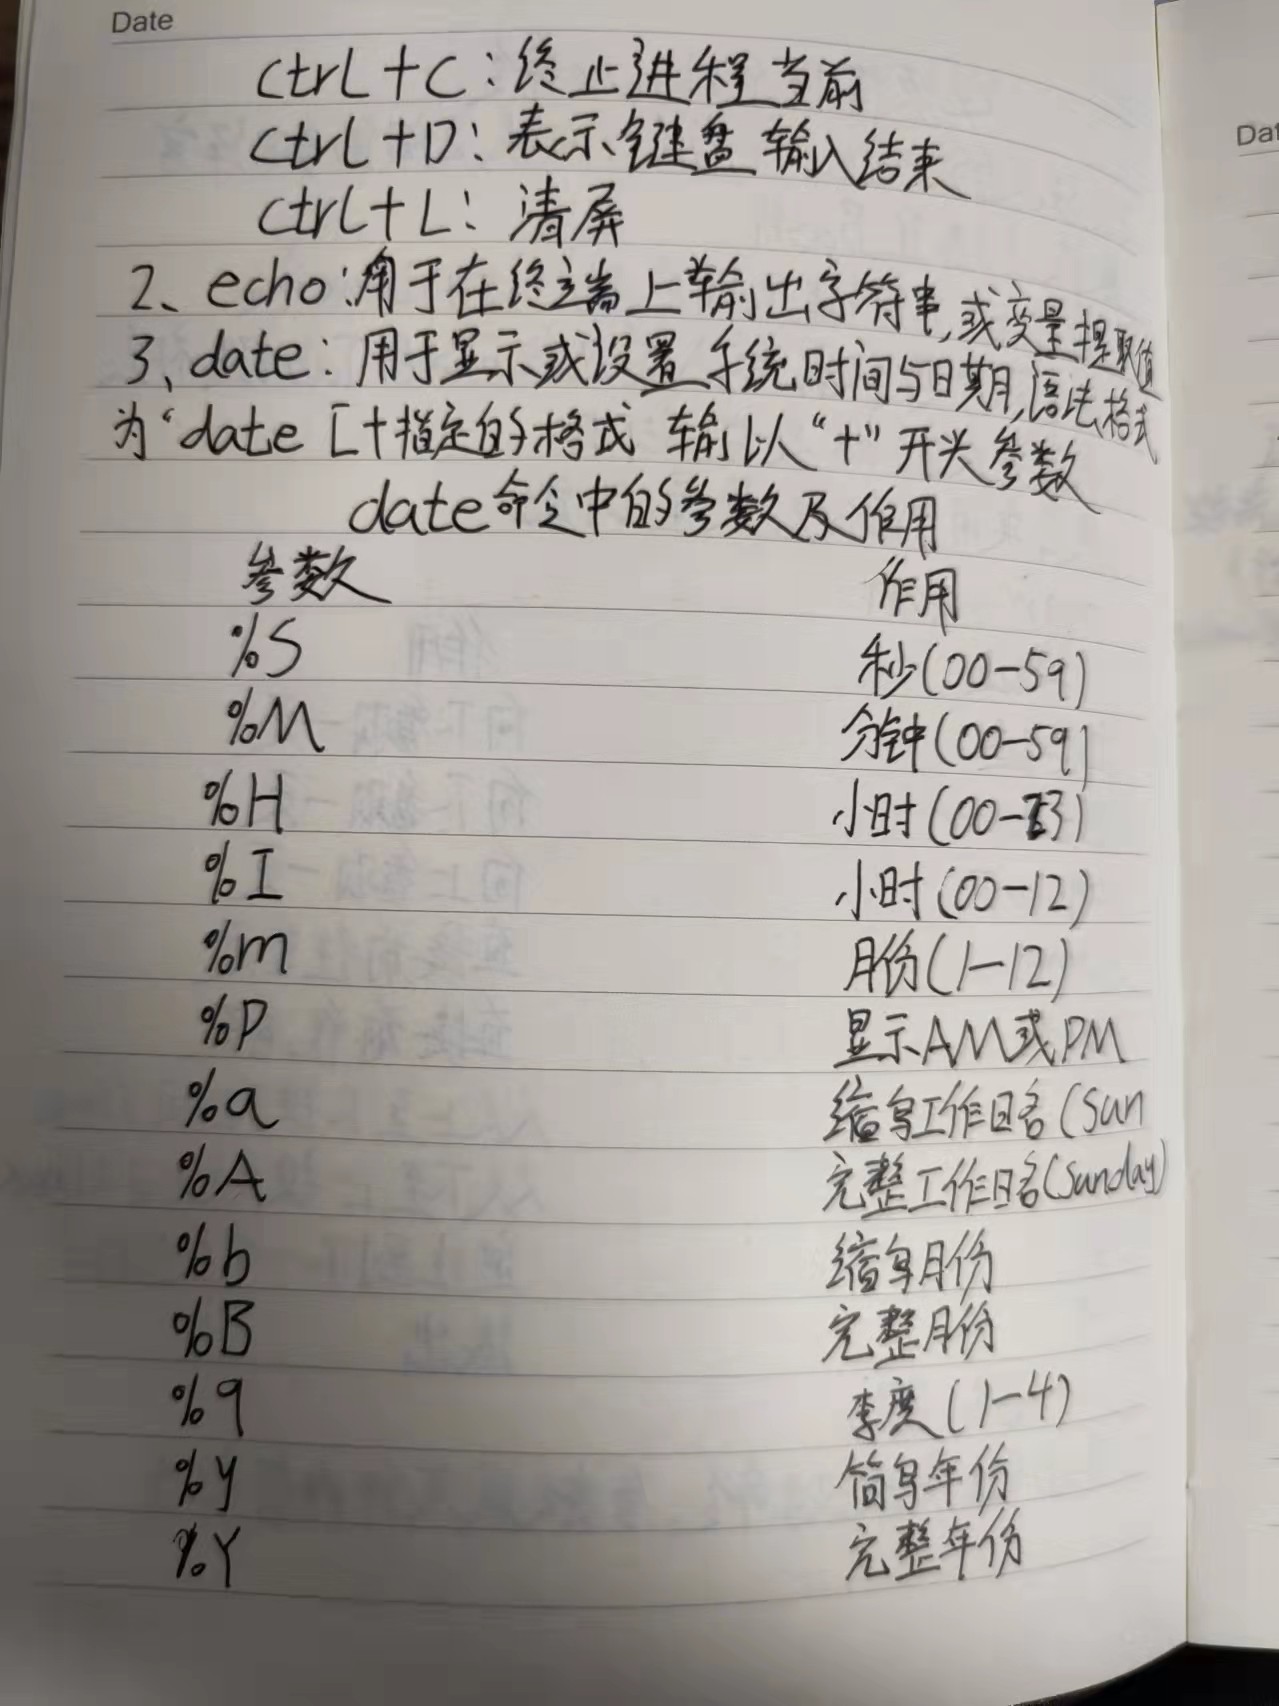 Date
ctrl+C:终止进程当前
ctrl+D:表示键盘输入结束
ctrl+L:清屏
2、echo:用于在终端上输出字符串,或变量提取值
3、date:用于显示或设置系统时间与日期,语法格式
为“date [+指定的格式 输以“+”开头参数
date命令中的参数及作用
参数 作用
%S 秒(00-59)
%M 分钟(00-59)
%H 小时(00-23)
%I 小时(00-12)
%m 月份(1-12)
%P 显示AM或PM
%a 缩写工作日名(Sun
%A 完整工作日名(Sunday)
%b 缩写月份
%B 完整月份
%q 季度(1-4)
%y 简写年份
%Y 完整年份